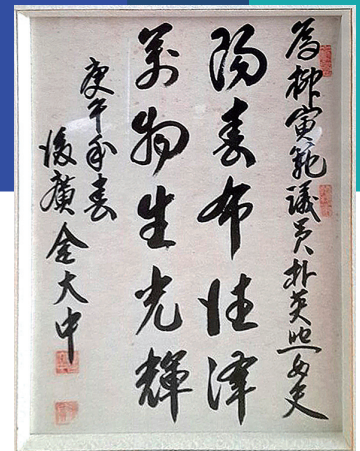 為柳寅範議員朴英照女史
陽春布德澤
萬物生光輝
庚午春
後廣金大中